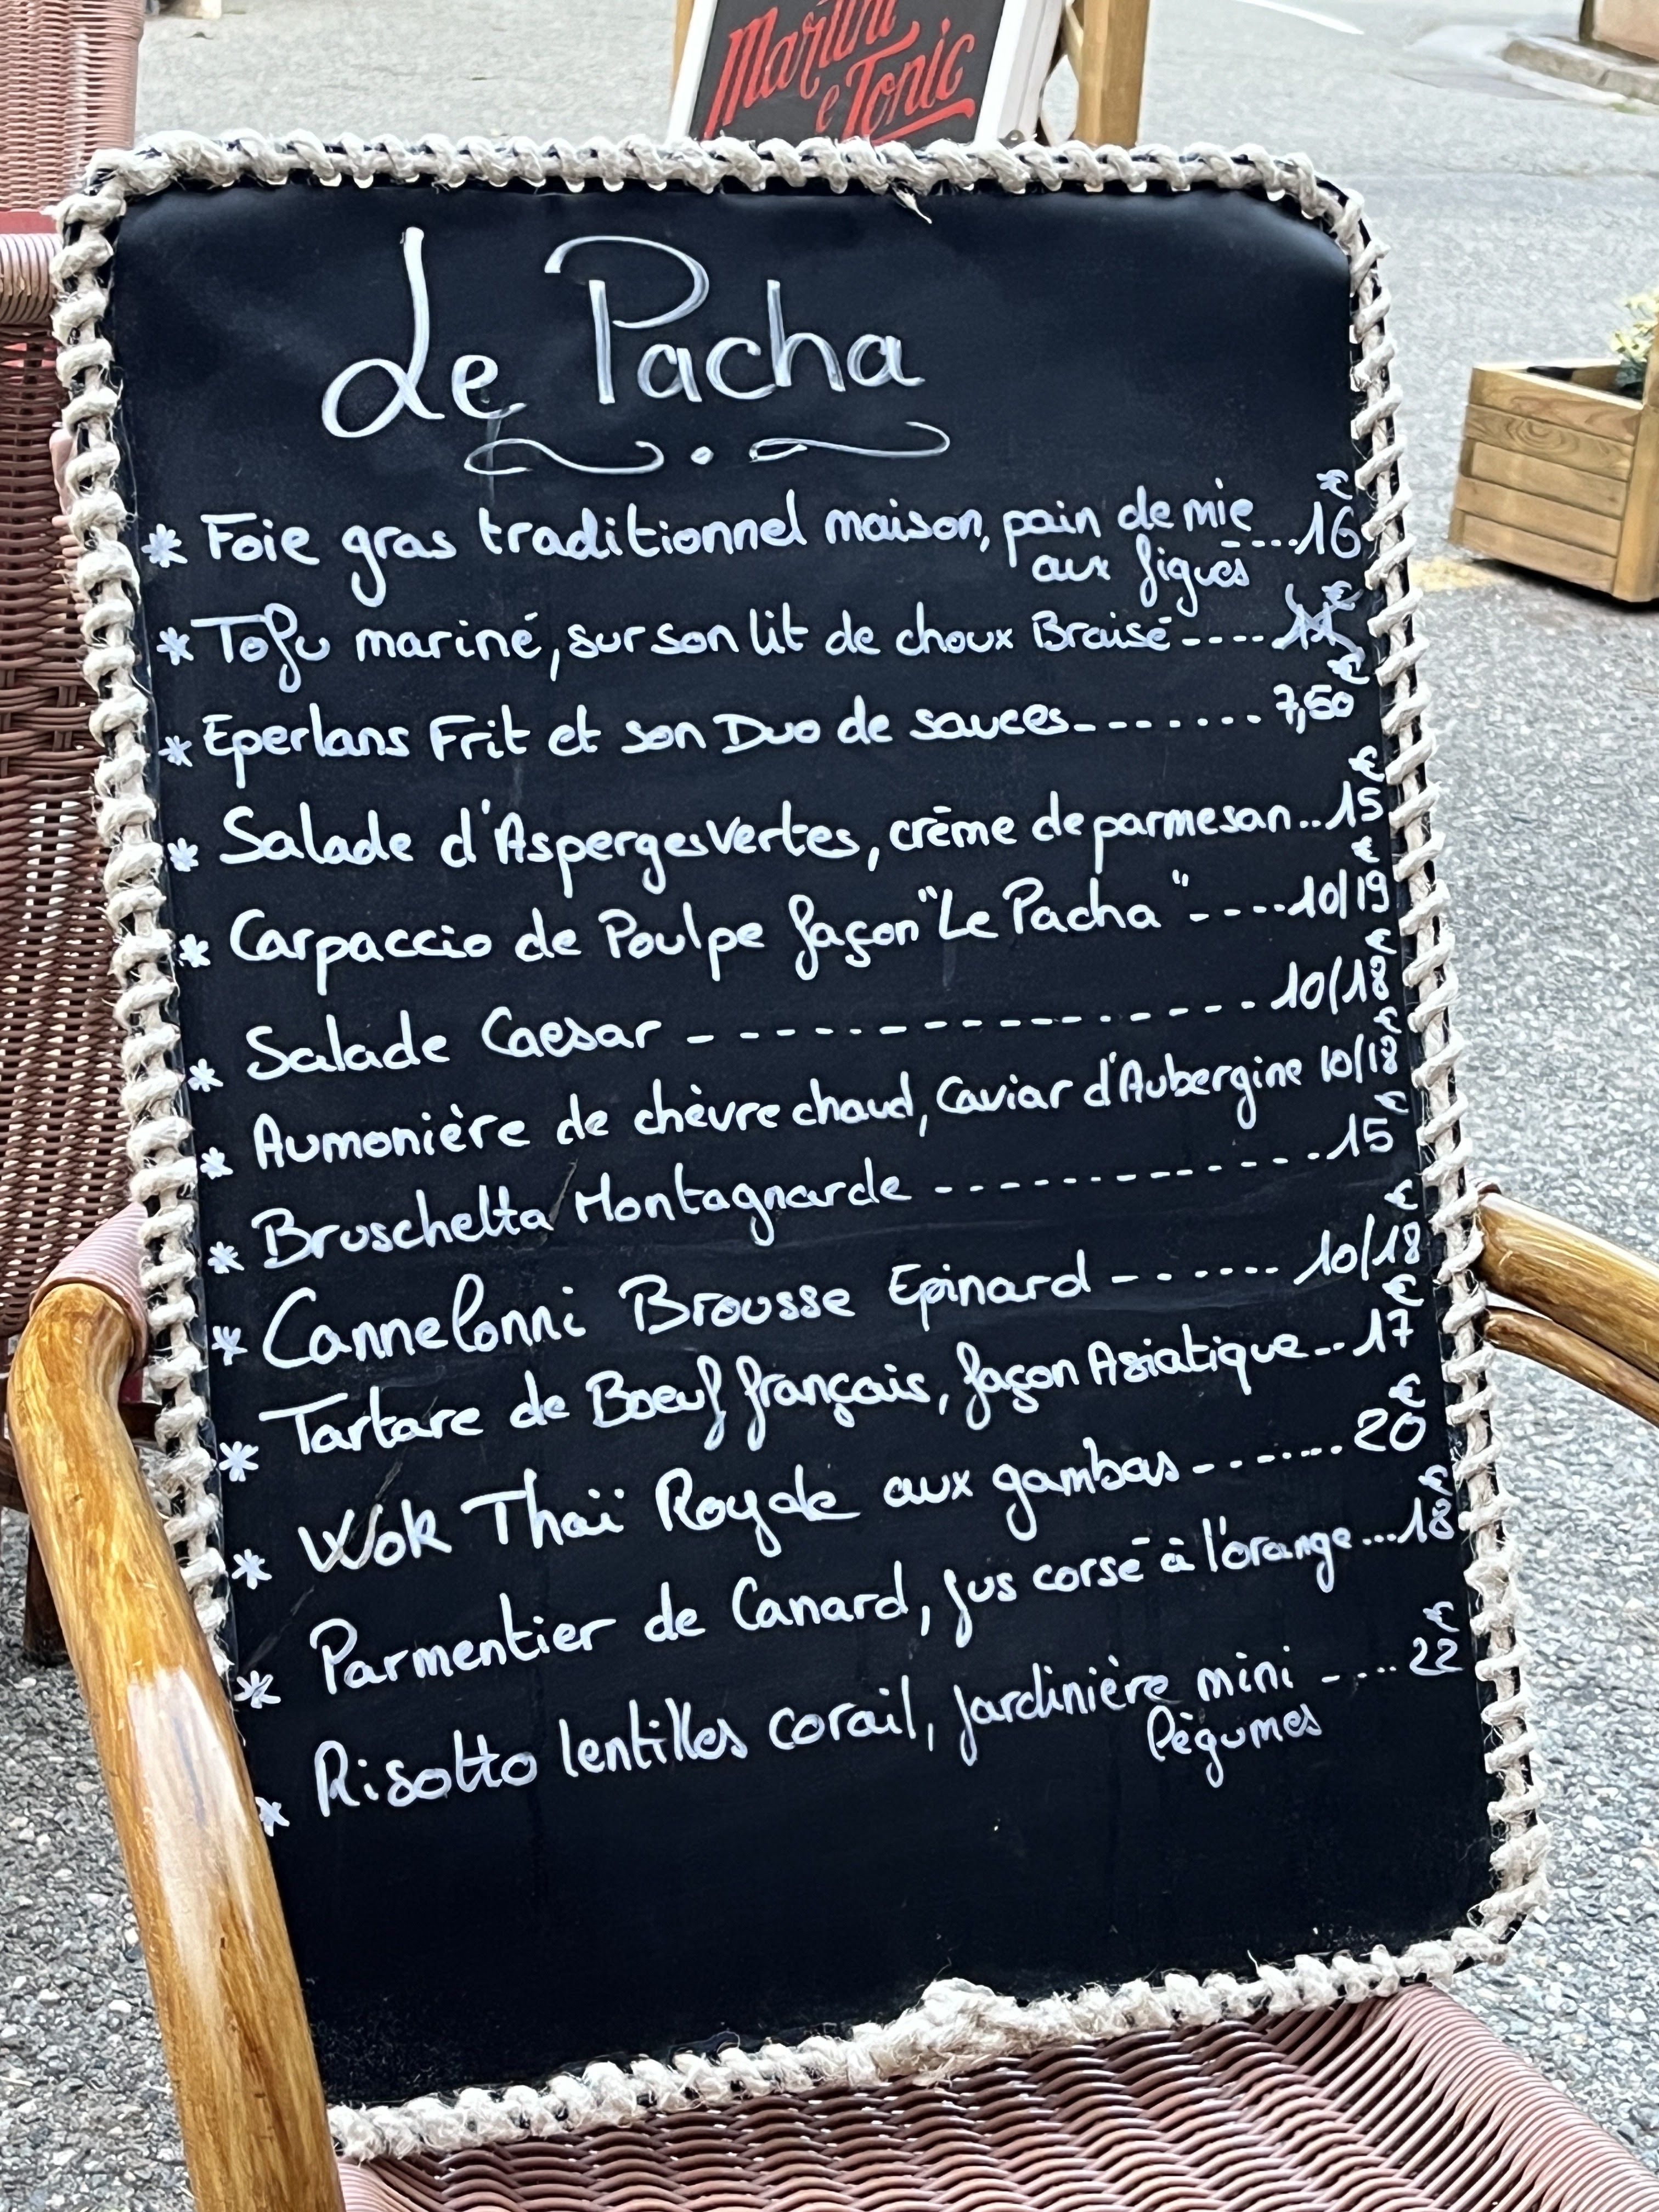 Martini
e Tonic
Le Pacha
* Foie gras traditionnel maison, pain de mie ---- 16€
aux figues
* Tofu mariné, sur son lit de choux Braisé ---- €
* Eperlans Frit et son Duo de sauces ------- 7,50€
* Salade d'Asperges Vertes, crème de parmesan .. 15€
* Carpaccio de Poulpe façon "Le Pacha" ---- 10/19€
* Salade Caesar ---------------- 10/18€
* Aumonière de chèvre chaud, Caviar d'Aubergine 10/18€
* Bruschetta Montagnarde ------------- 15€
* Cannelonni Brousse Epinard ------- 10/18€
* Tartare de Boeuf français, façon Asiatique --- 17€
* Wok Thaï Royale aux gambas ------- 20€
* Parmentier de Canard, jus corsé à l'orange ... 18€
* Risotto lentilles corail, jardinière mini ----- 22€
légumes